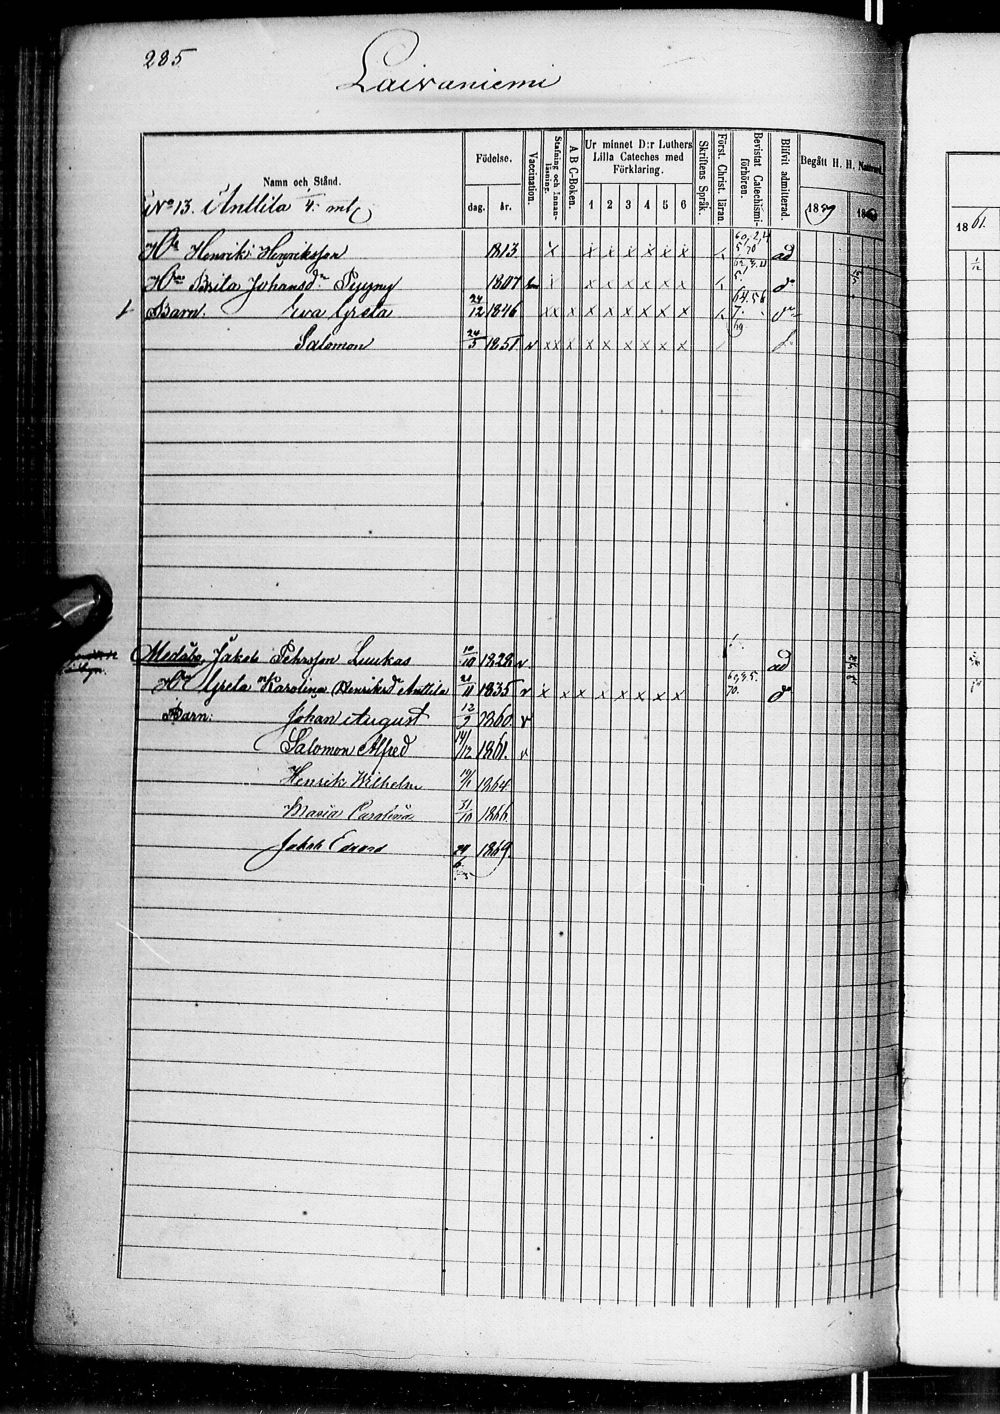 285
Laivaniemi
Namn och Stånd.
Födelse.
dag. år.
Vaccination.
Stafning och Innanläsning.
A B C-Boken.
Ur minnet D:r Luthers Lilla Cateches med Förklaring.
1 2 3 4 5 6
Skriftens Språk.
Först. Christ. läran.
Bevistat Catechismiförhören.
Blifvit admitterad.
Begått H. H. Nattvard.
1859 1860
1861.
No 13. Anttila 4: mtl
Henrik Henriksson 1813 x x x x x x x ad
Brita Johansd:r 1807 x x x x x x d:o
Barn. Eva Greta 24/12 1846 x x x x x x x x x
Salomon 24/5 1851 v x x x x x x x x x
Medåbo, Jakob Pehrsson Luukas 10/10 1828 v ad
Greta Karolina Henriksd Anttila 21/11 1835 v x x x x x x x x x d:o
Barn: Johan August 12/2 1860. v
Salomon Alfred 14/12 1861. v
Henrik Wilhelm 1864
Maria Carolina 31/10 1866
Jakob Edvard 29/6 1869.